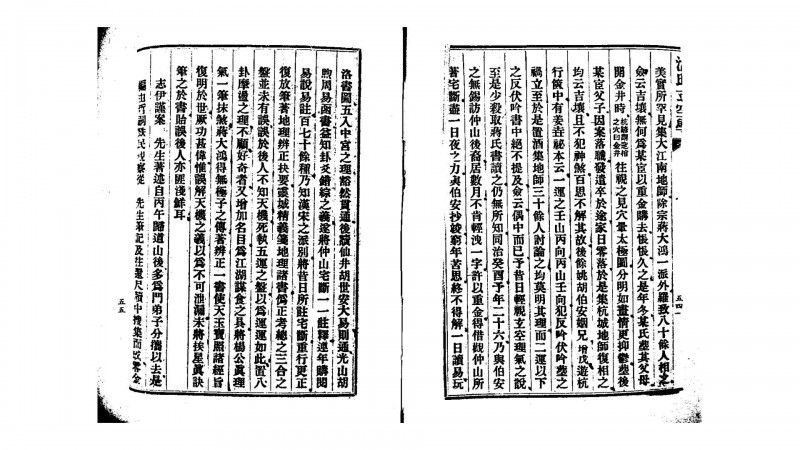 美實所罕見集大江南地師除宗蔣大鴻一派外羅致八十餘人相之
僉云吉壤無何爲某宦以重金購去悵悵久之是年冬某氏葬其父母
開金井時杭縣謂定棺之穴曰金井往視之見穴暈太極圖分明如畫情更抑鬱葬後
某宦父子因案落職發遣卒於途家日零落於是集杭城地師復相之
均云吉且不犯神煞百思不解其故後餘姚胡伯安姻兄增戌遊杭
行篋中有姜垚祕本云一運之壬山丙向丙山壬向犯反吟伏吟葬之
禍立至於是置酒集地師三十餘人討論之均莫明其理而二運以下
之反伏吟書中絕不提及僉云偶中而已予昔日輕視玄空理氣之說
至是少殺取蔣氏書讀之仍無所知同治癸酉予年二十六乃與伯安
之無錫訪仲山後裔居數月不肯輕洩一字許以重金得借觀仲山所
著宅斷盡一日夜之力與伯安抄竣窮年苦思終不得解一日讀易玩
五四
洛書圖五入中宮之理豁然貫通後讀仙井胡世安大易則通光山胡
煦周易函書益知卦爻錯綜之義遂將仲山宅斷一一註釋連年購閱
易說易註百七十餘種乃知漢宋之派別將昔日所註宅斷重行更正
復放筆著地理辨正抉要靈城精義箋地理諸書僞正考總之三合之
盤並未有誤誤於後人不知天機死執五運之盤以爲運運如此置八
卦摩盪之理不顧好奇者又增加名目爲江湖謀食之具將楊公眞理
氣一筆抹煞蔣大鴻得無極子之傳著辨正一書使天玉寶照諸經旨
復明於世厥功甚偉惟誤解天機之義以爲不可泄漏未將挨星眞訣
筆之於書貽誤後人亦匪淺鮮耳
志伊謹案 先生著述自丙午歸道山後多爲門弟子分攜以去是
先生筆記及往還尺牘中搜集而成零金
五五